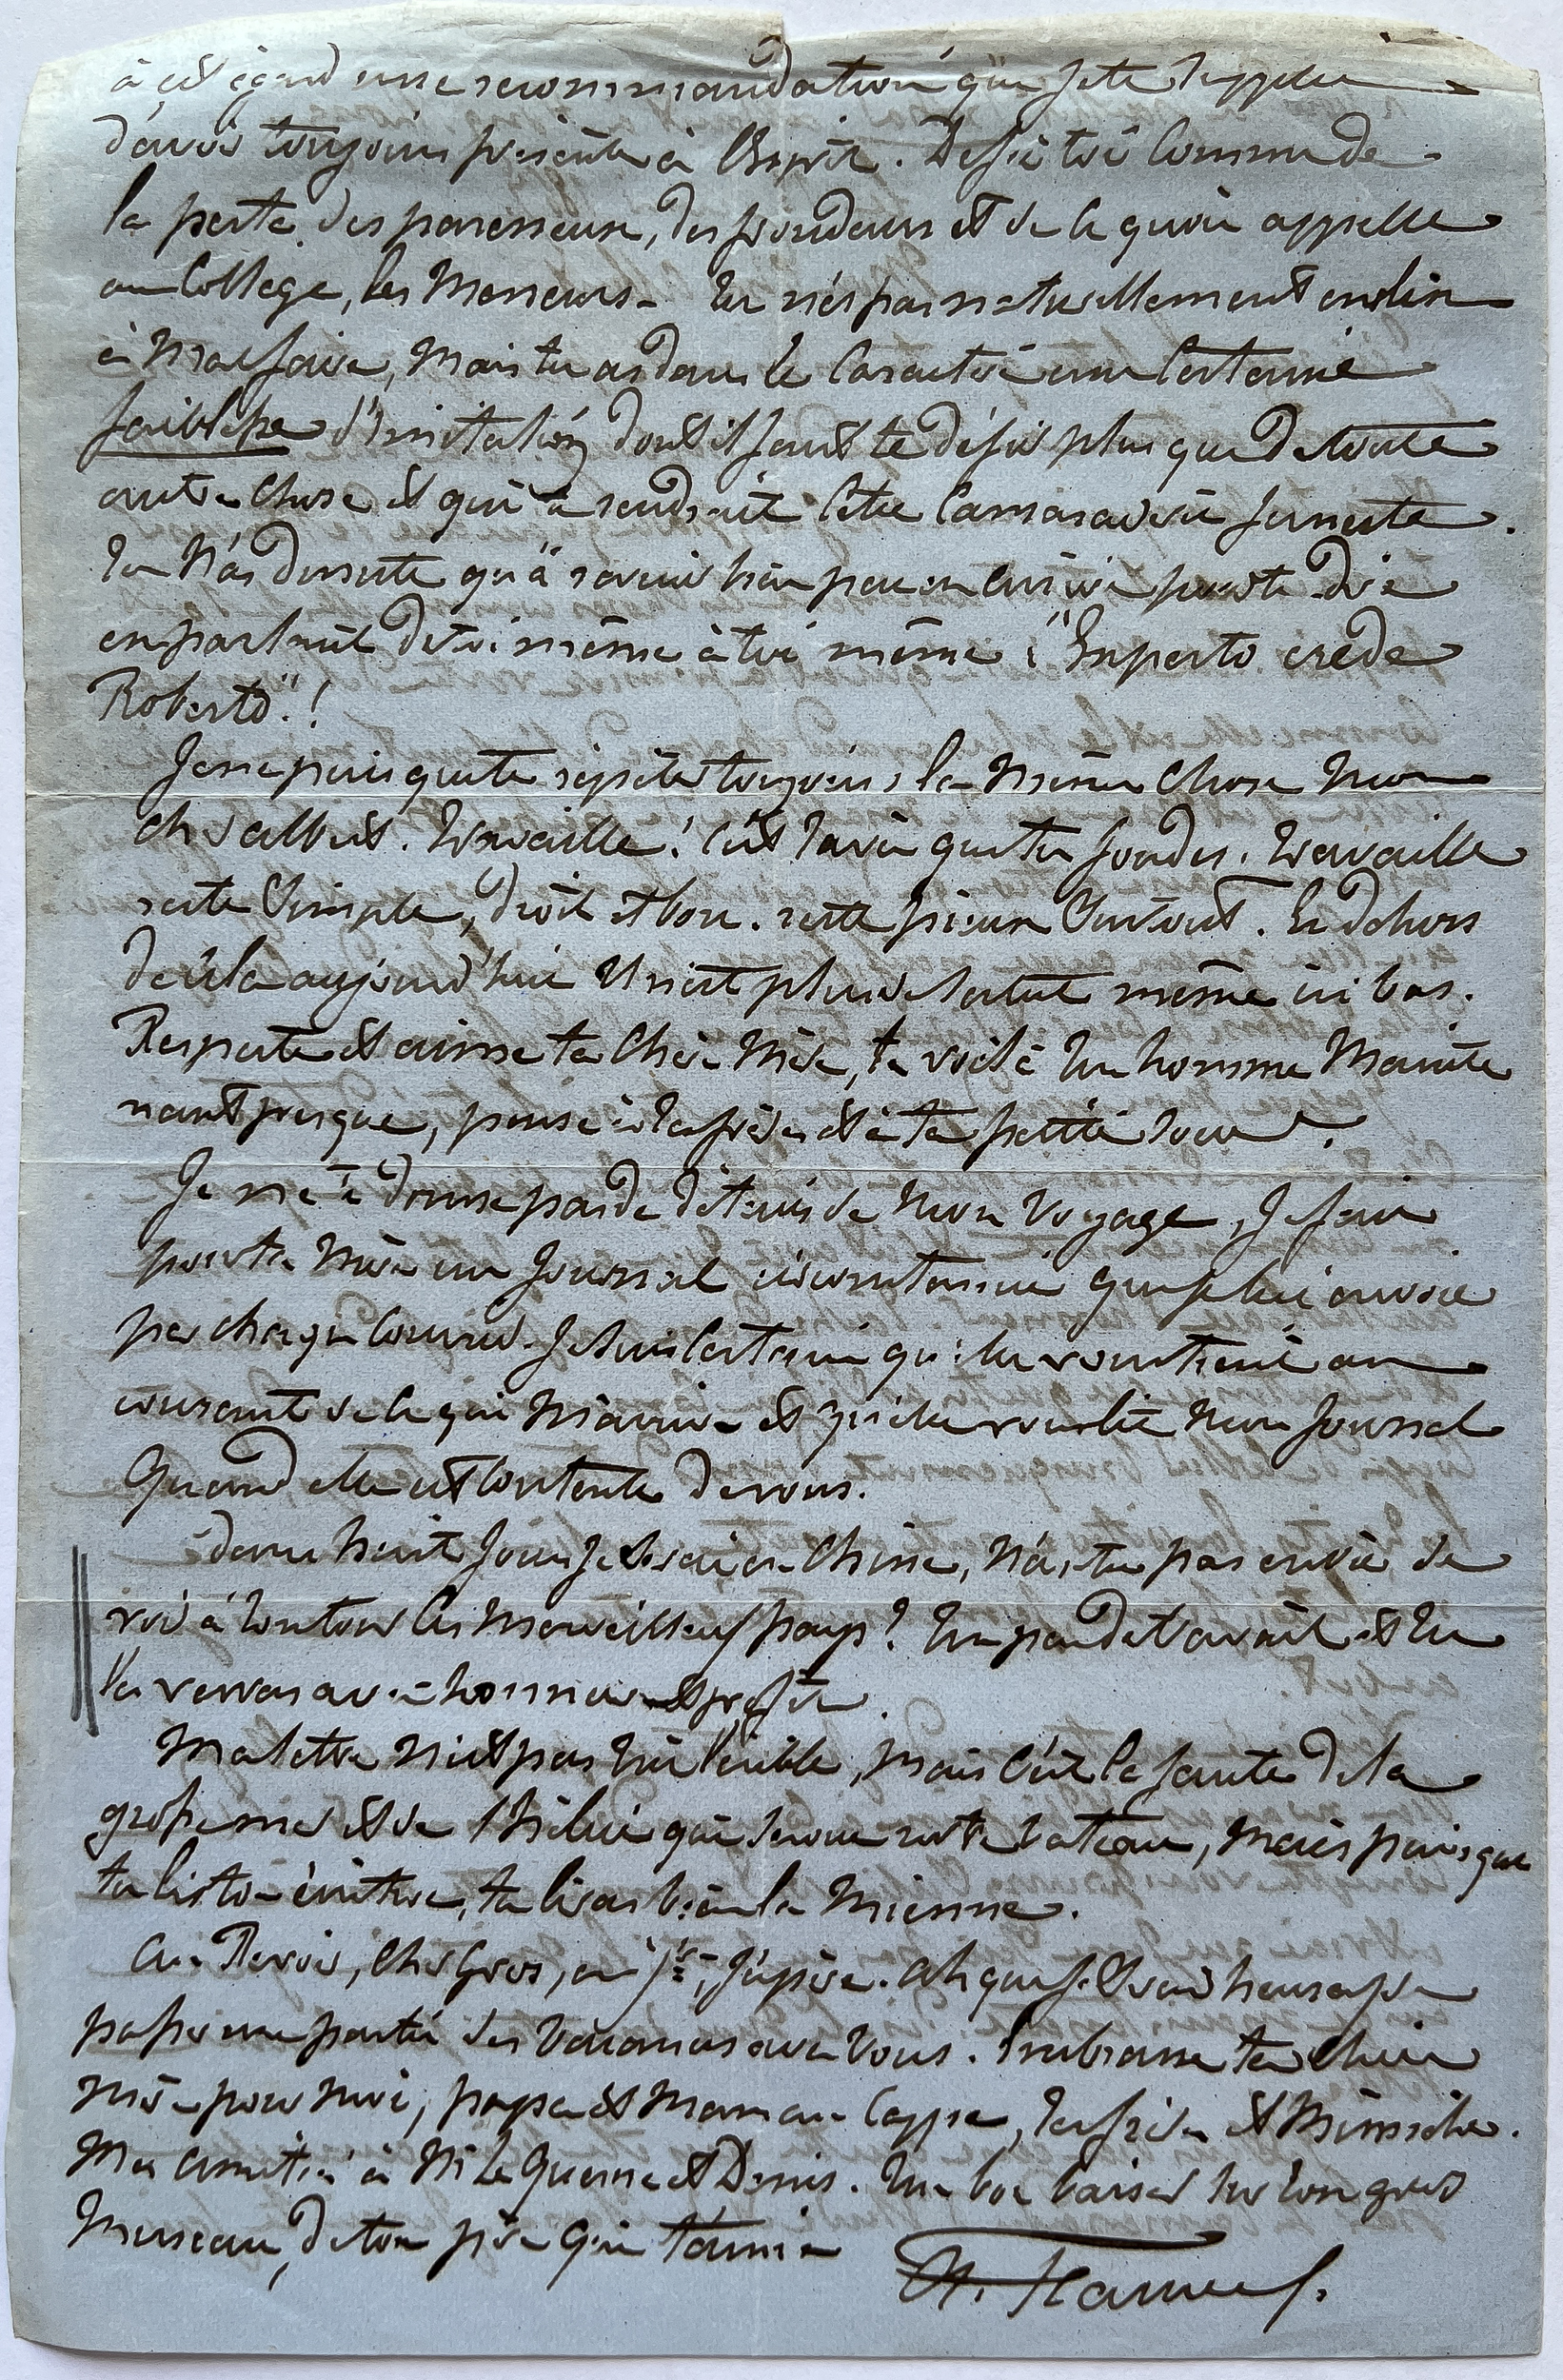 à cet égard une recommandation que je te supplie
d'avoir toujours présente à l'esprit. Défie toi comme de
la peste, des paresseux, des frondeurs et de ce qu'on appelle
au College, les Meneurs. Tu n'es pas naturellement enclin
à Mal faire, Mais tu as dans le Caractère une Certaine
faiblesse d'imitation dont il faut te défier plus que de toute
autre Chose et qui te rendrait Cette Camaraderie funeste.
Tu N'as du reste qu'à revenir bien peu en arrière pour te dire
en parlant de toi même à toi même : "Experto crede
Roberto" !
Je ne puis que te répéter toujours la Même Chose Mon
cher Albert. Travaille ! C'est l'avenir que tu fondes. Travaille
reste Simple, droit et bon. reste pieux Surtout. En dehors
de cela aujourd'hui Il n'est plus de Salut même ici bas.
Respecte et aime ta Chère Mère, te voilà Un homme Mainte
nant presque, pense à ta frère et à ta petite soeur.
Je ne te donne pas de détails de Mon Voyage, Je fais
pour ta Mère un Journal circonstancié que je lui envoie
par chaque Courrier. Je Suis Certain qu'elle vous tient au
courant de ce qui M'arrive et qu'elle vous lit Mon Journal
Quand elle est Contente de vous.
Dans huit Jours Je Serai en Chine, N'as tu pas envie de
voir à ton tour Ces Merveilleux pays ? Un peu de travail et Tu
les verras avec honneur et profit.
Ma lettre N'est pas très lisible, Mais C'est la faute de la
grosse mer et de l'hélice qui secoue notre bateau, Mais puisque
tu lis ton écriture, tu liras bien la Mienne.
Au Revoir, Cher Gros, en j<sup>er</sup>, J'espère. Ah que je Serai heureux de
passer une partie des Vacances avec Vous. Embrasse ta chère
Mère pour Moi, papa et Maman Cappe, ta frère et Mimiche.
Mes amitiés à M. Le Guerne et Denis. Un bon baiser sur ton gros
Museau, de ton père qui t'aime